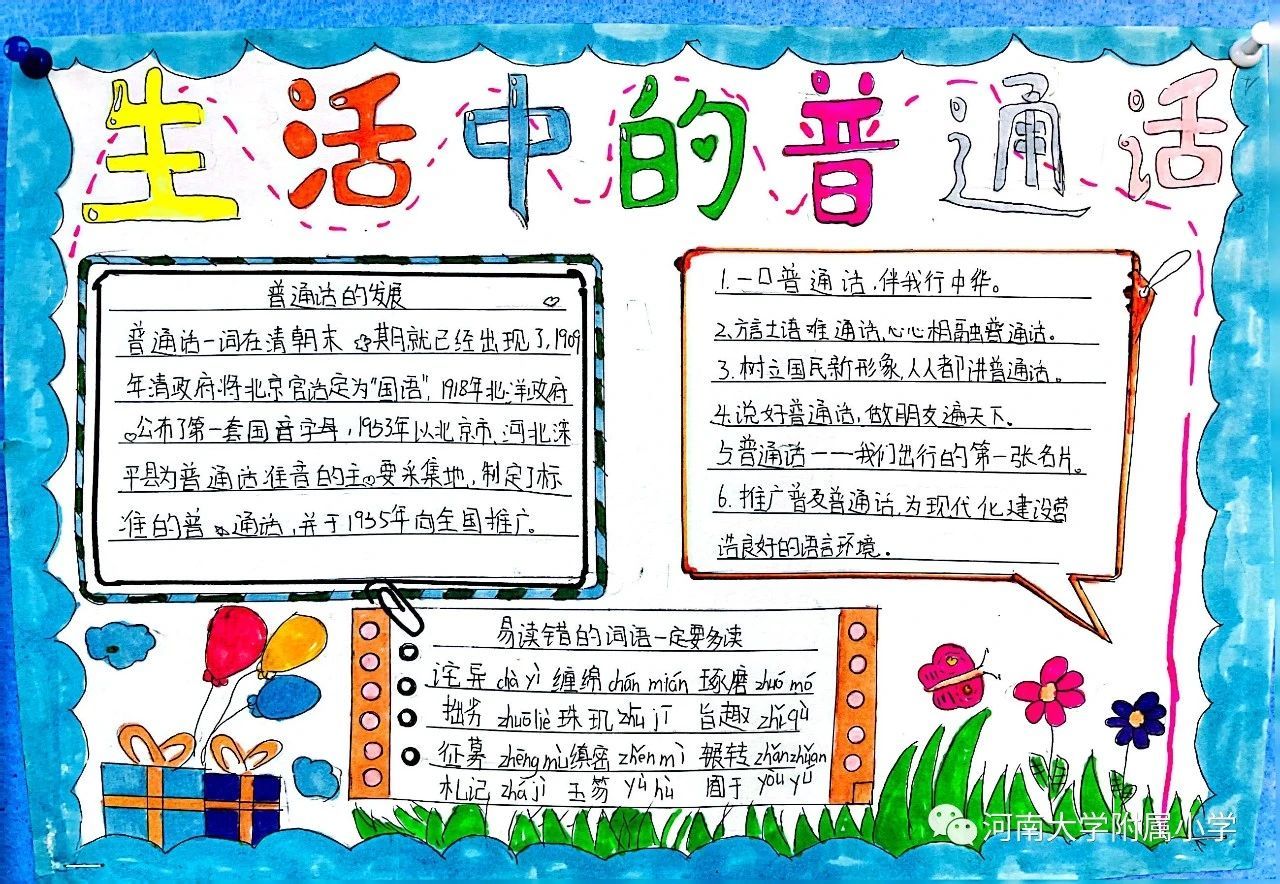 生活中的普通话
普通话的发展
普通话一词在清朝末期就已经出现了,1909
年清政府将北京官话定为“国语”,1918年北洋政府
公布了第一套国音字母,1953年以北京市、河北滦
平县为普通话准音的主要采集地,制定了标
准的普通话,并于1955年向全国推广。
1.一口普通话,伴我行中华。
2.方言土语难通话,心心相融普通话。
3.树立国民新形象,人人都讲普通话。
4.说好普通话,做朋友遍天下。
5.普通话——我们出行的第一张名片。
6.推广普及普通话,为现代化建设营
造良好的语言环境。
易读错的词语一定要多读
诧异 chà yì 缠绵 chán mián 琢磨 zhuó mó
拙劣 zhuōliè 珠玑 zhū jī 旨趣 zhǐ qù
征募 zhēng mù 缜密 zhěn mì 辗转 zhǎn zhuǎn
札记 zhá jì 玉笏 yù hù 囿于 yòu yú
河南大学附属小学